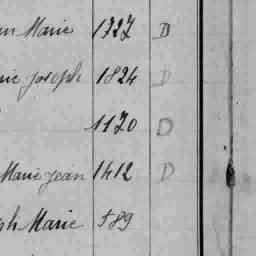 Marie 1327 D
joseph 1824 D
1170 D
Marie jean 1412 D
ph Marie 589